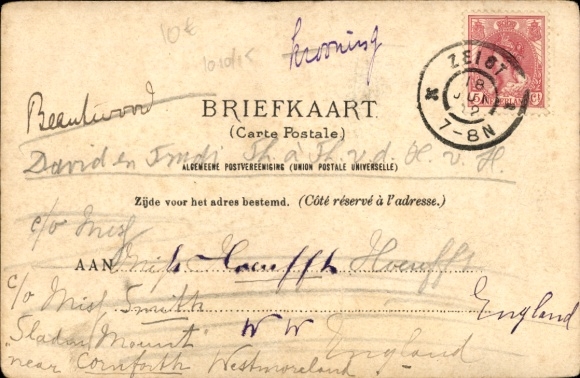 10€
10/10/15
Krooning
ZEIST
18
JUN
02
7-8N
NEDERLAND
5 ct
Beantwoord
BRIEFKAART.
(Carte Postale.)
David en
ALGEMEENE POSTVEREENIGING (UNION POSTALE UNIVERSELLE)
Zijde voor het adres bestemd. (Côté réservé à l'adresse.)
c/o Miss
AAN Hoeufft Hoeufft
c/o Miss Smith
England
Mount W W England
near Carnforth Westmoreland